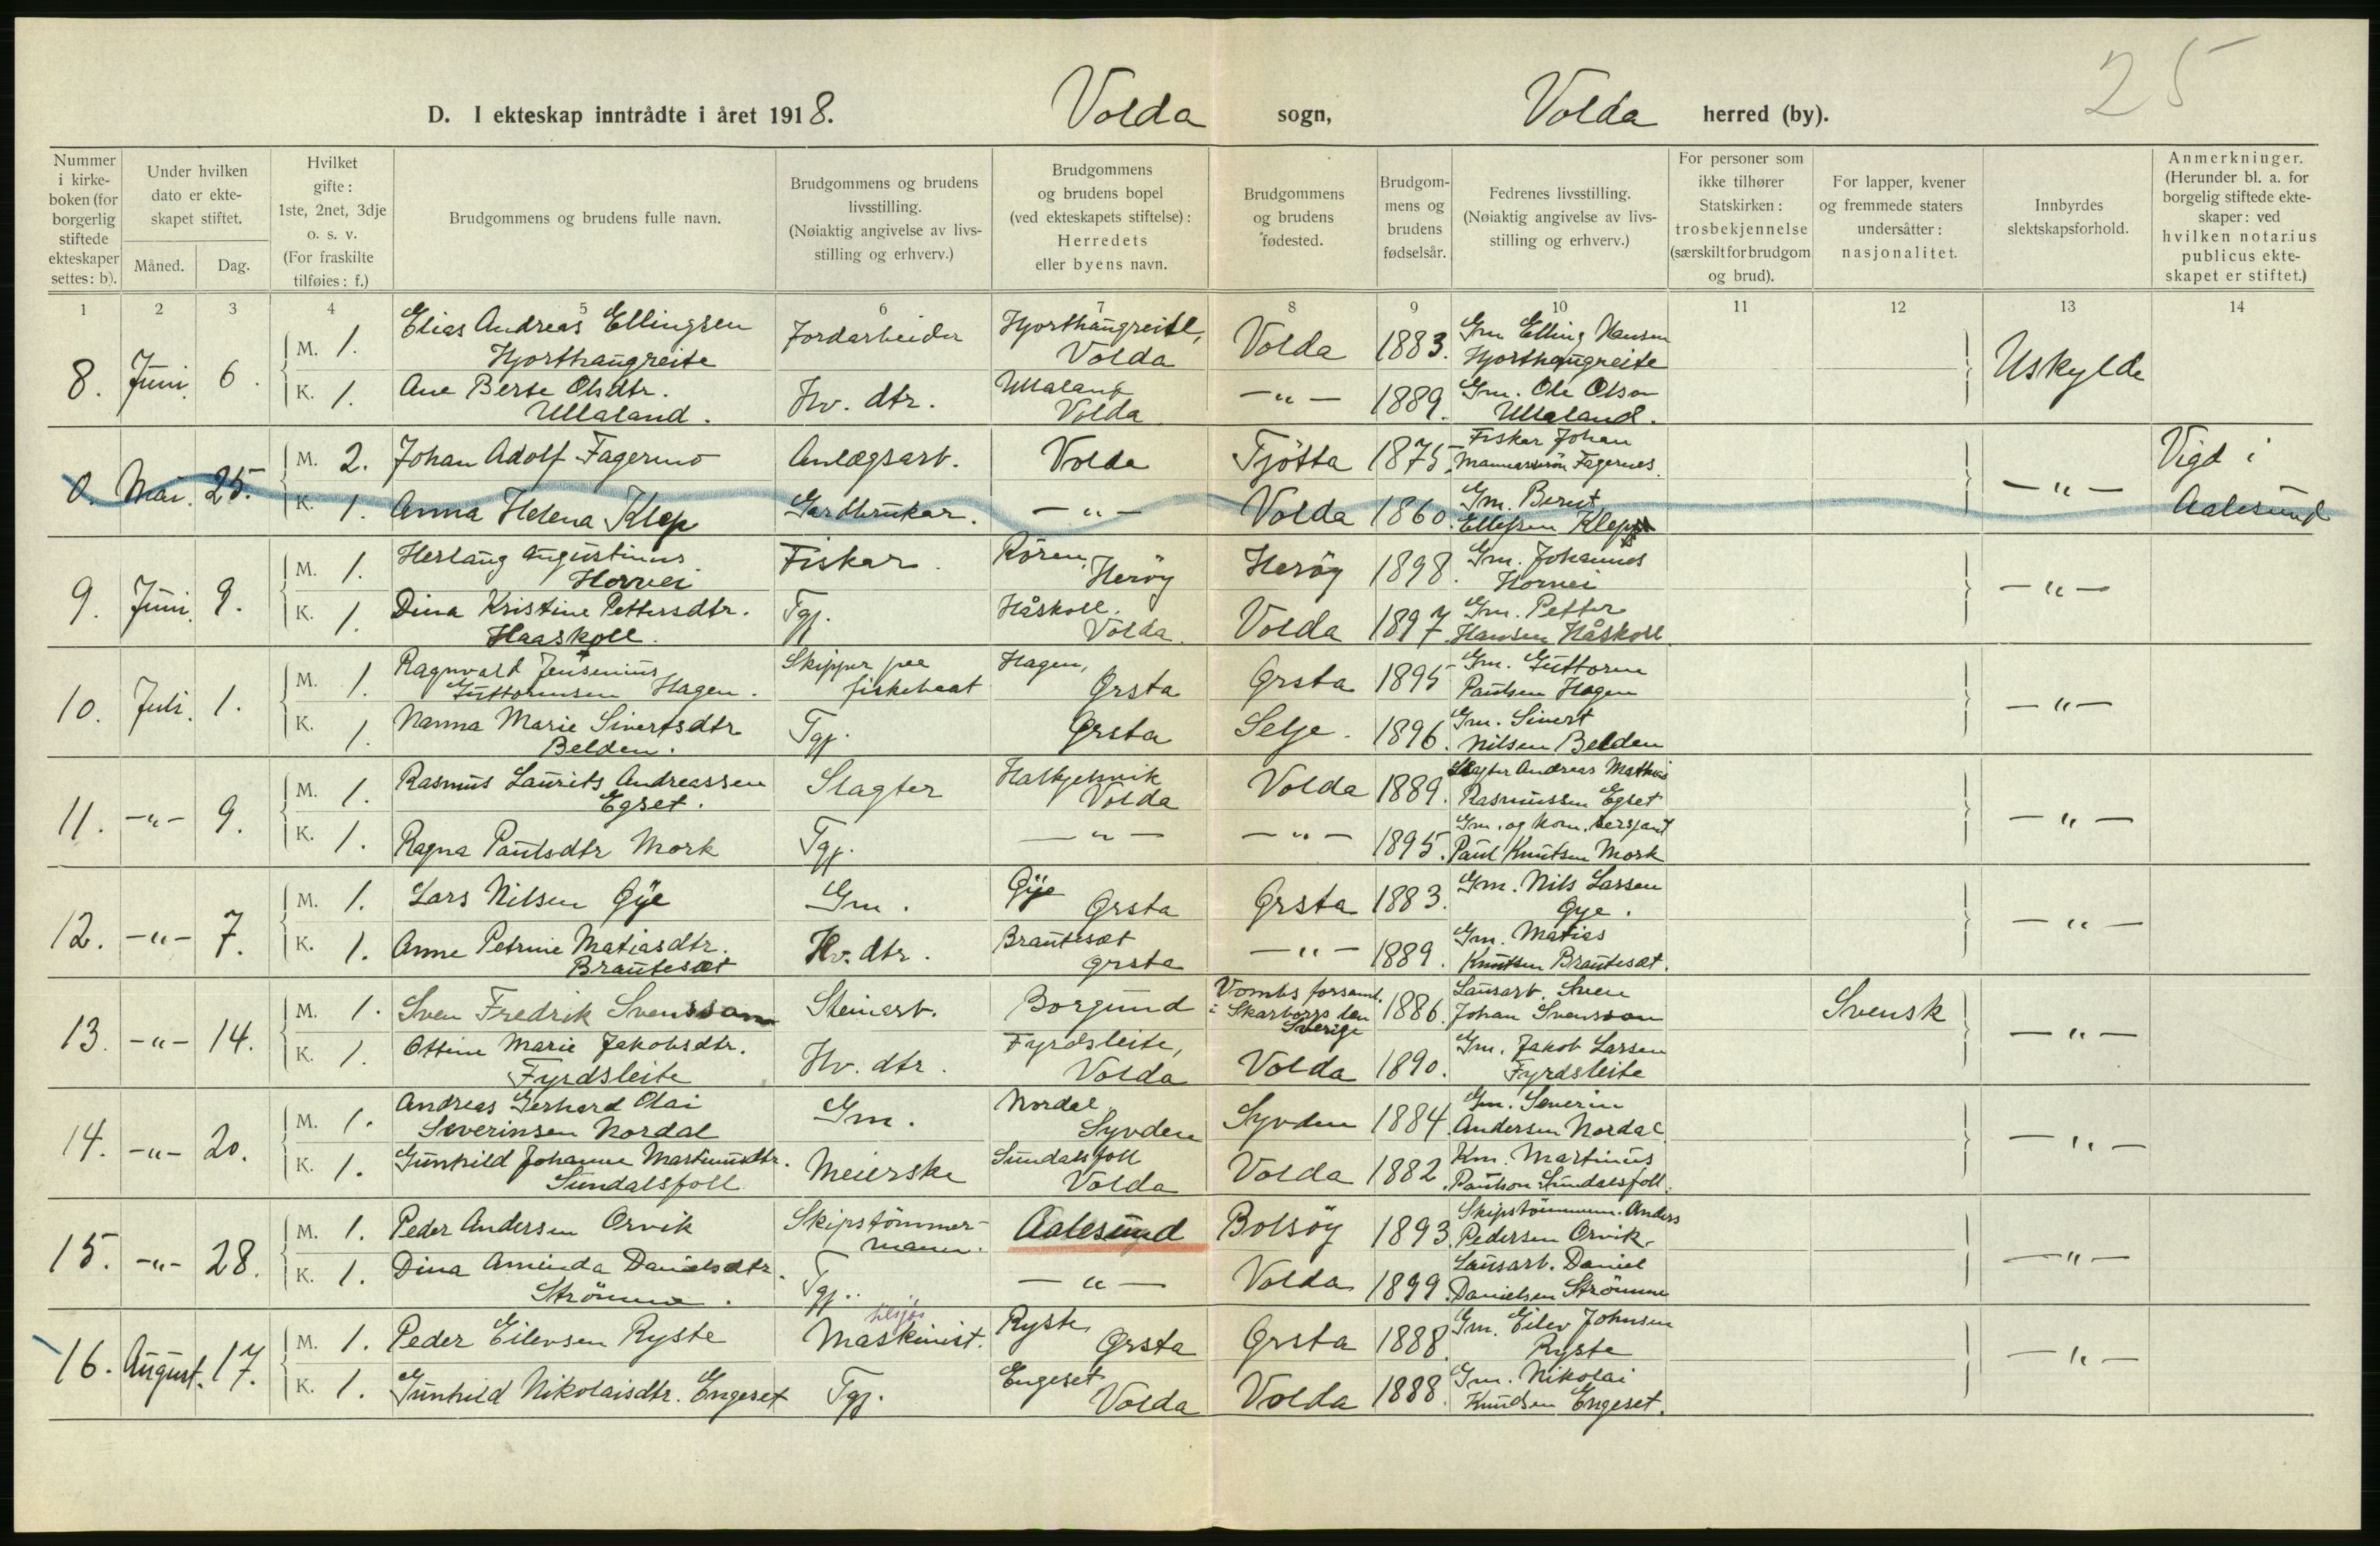 25
D. I ekteskap inntrådte i året 1918. Volda sogn, Volda herred (by).
Nummer i kirke-boken (for borgerlig stiftede ekteskaper settes: b).
Under hvilken dato er ekte-skapet stiftet.
Måned. Dag.
Hvilket gifte: 1ste, 2net, 3dje o. s. v. (For fraskilte tilføies: f.)
Brudgommens og brudens fulle navn.
Brudgommens og brudens livsstilling. (Nøiaktig angivelse av livs-stilling og erhverv.)
Brudgommens og brudens bopel (ved ekteskapets stiftelse): Herredets eller byens navn.
Brudgommens og brudens fødested.
Brudgom-mens og brudens fødselsår.
Fedrenes livsstilling. (Nøiaktig angivelse av livs-stilling og erhverv.)
For personer som ikke tilhører Statskirken: trosbekjennelse (særskilt for brudgom og brud).
For lapper, kvener og fremmede staters undersåtter: nasjonalitet.
Innbyrdes slektskapsforhold.
Anmerkninger. (Herunder bl. a. for borgelig stiftede ekte-skaper: ved hvilken notarius publicus ekte-skapet er stiftet.)
1 2 3 4 5 6 7 8 9 10 11 12 13 14
8. Juni 6. M. 1. Elias Andreas Ellingsen Hjorthaugreite Jordarbeider Hjorthaugreitl, Volda Volda 1883. Gm Elling Hansen Hjorthaugreite Uskylde
K. 1. Ane Berte Olsdtr. Ullaland. Hv. dtr. Ullaland Volda -"- 1889. Gm. Ole Olson Ullaland.
0. Mai. 25. M. 2. Johan Adolf Fagermo Anlægsarb. Volda Tjötta 1875. Fiskar Johan Fagernes -"- Vigd i Aalesund
K. 1. Anna Helena Klep Gardbrukar. -"- Volda 1860. Gm. Bernt Ellefsen Klepp
9. Juni. 9. M. 1. Herlaug Augustinus Hornei Fiskar. Rören, Heröy Heröy 1898. Gm. Johannes Hornei -"-
K. 1. Dina Kristine Pettersdtr. Haaskoll. Tgj. Håskoll. Volda. Volda 1897. Gm. Petter Hansen Håskoll
10. Juli. 1. M. 1. Ragnvald Jensenius Guttormsen Hagen. Skipper paa fiskebaat Hagen, Ørsta Ørsta 1895 Gm. Guttorm Paulsen Hagen -"-
K. 1. Nanna Marie Sivertsdtr Belden. Tgj. Ørsta Selje. 1896. Gm. Sivert Nilsen Belden
11. -"- 9. M. 1. Rasmus Laurits Andreassen Egset. Slagter Halkjelsvik Volda Volda 1889. Slagter Andreas Mathias Rasmussen Egset -"-
K. 1. Ragna Paulsdtr Mork Tgj. -"- -"- 1895. Gm. og Kom. sersjant Paul Knutsen Mork
12. -"- 7. M. 1. Lars Nilsen Øye Gm. Øye Ørsta Ørsta 1883. Gm. Nils Larsen Øye. -"-
K. 1. Anne Petrine Matiasdtr. Brautesæt Hv. dtr. Brautesæt Ørsta -"- 1889. Gm. Matias Knutsen Brautesæt.
13. -"- 14. M. 1. Sven Fredrik Svensson Steinarb. Borgund Vombs forsaml. i Skarborgs len Sverige 1886. Lausarb. Sven Johan Svensson Svensk -"-
K. 1. Ottine Marie Jakobsdtr. Fyrdsleite Hv. dtr. Fyrdsleite, Volda Volda 1890. Gm. Jakob Larsen Fyrdsleite
14. -"- 20. M. 1. Andreas Gerhard Olai Severinsen Nordal Gm. Nordal Syvden Syvden 1884 Gm. Severin Andersen Nordal -"-
K. 1. Gunhild Johanne Martinusdtr. Sundalsfoll Meierske Sundalsfoll Volda Volda 1882. Km. Martinus Paulson Sundalsfoll.
15. -"- 28. M. 1. Peder Andersen Orvik Skipstömmer-mann. Aalesund Bolsöy 1893. Skipstömmerm. Anders Pedersen Orvik. -"-
K. 1. Dina Aminda Danielsdtr. Strömme. Tgj. -"- Volda 1899. Lausarb. Daniel Danielsen Strömme
16. August. 17. M. 1. Peder Eilevsen Ryste Maskinist. tilsjøs Ryste Ørsta Ørsta 1888. Gm. Eilev Johnsen Ryste -"-
K. 1. Gunhild Nikolaisdtr. Engeset Tgj. Engeset Volda Volda 1888. Gm. Nikolai Knudsen Engeset.